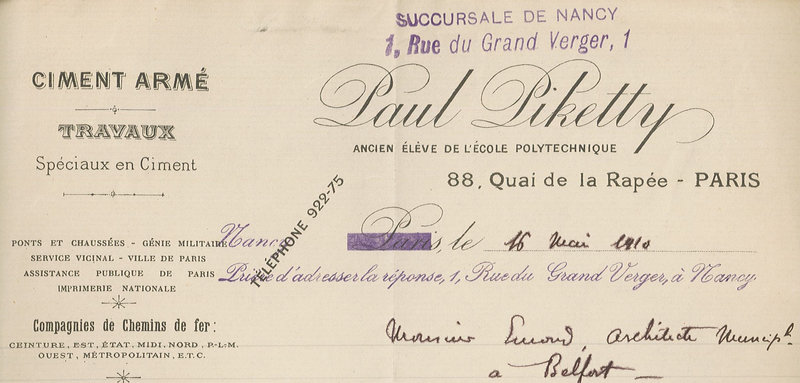 SUCCURSALE DE NANCY
1, Rue du Grand Verger, 1
CIMENT ARMÉ
TRAVAUX
Spéciaux en Ciment
Paul Piketty
ANCIEN ÉLÈVE DE L'ÉCOLE POLYTECHNIQUE
88, Quai de la Rapée - PARIS
TÉLÉPHONE 922-75
PONTS ET CHAUSSÉES - GÉNIE MILITAIRE
SERVICE VICINAL - VILLE DE PARIS
ASSISTANCE PUBLIQUE DE PARIS
IMPRIMERIE NATIONALE
Compagnies de Chemins de fer:
CEINTURE, EST, ÉTAT, MIDI, NORD, P.-L.-M.
OUEST, MÉTROPOLITAIN, E.T.C.
Nancy Paris, le 16 Mai 1910
Prière d'adresser la réponse, 1, Rue du Grand Verger, à Nancy
Monsieur Emond, architecte Municipl.
à Belfort